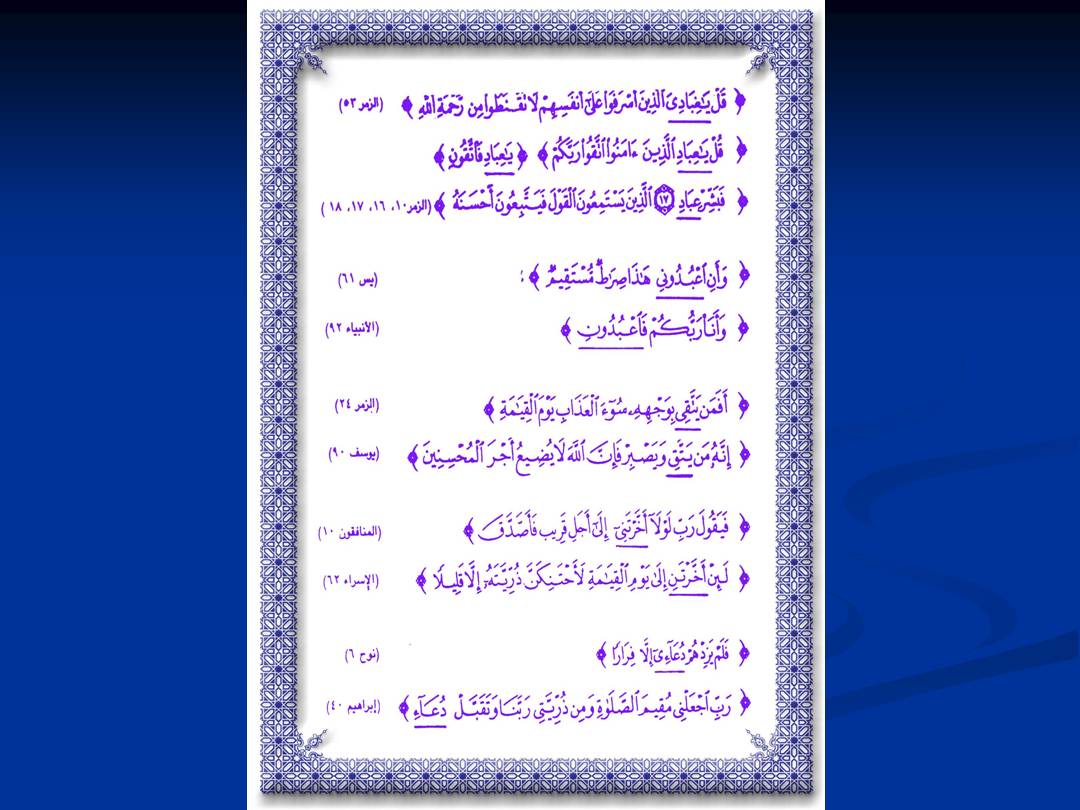 ﴿ قُلْ يَـٰعِبَادِىَ ٱلَّذِينَ أَسْرَفُوا۟ عَلَىٰٓ أَنفُسِهِمْ لَا تَقْنَطُوا۟ مِن رَّحْمَةِ ٱللَّهِ ﴾ (الزمر ٥٣)
﴿ قُلْ يَـٰعِبَادِ ٱلَّذِينَ ءَامَنُوا۟ ٱتَّقُوا۟ رَبَّكُمْ ﴾ ﴿ يَـٰعِبَادِ فَٱتَّقُونِ ﴾
﴿ فَبَشِّرْ عِبَادِ ١٧ ٱلَّذِينَ يَسْتَمِعُونَ ٱلْقَوْلَ فَيَتَّبِعُونَ أَحْسَنَهُ ﴾ (الزمر١٠، ١٦، ١٧، ١٨ )
﴿ وَأَنِ ٱعْبُدُونِى هَـٰذَا صِرَٰطٌ مُّسْتَقِيمٌ ﴾ : (يس ٦١)
﴿ وَأَنَا۠ رَبُّكُمْ فَٱعْبُدُونِ ﴾ (الأنبياء ٩٢)
﴿ أَفَمَن يَتَّقِى بِوَجْهِهِۦ سُوٓءَ ٱلْعَذَابِ يَوْمَ ٱلْقِيَـٰمَةِ ﴾ (الزمر ٢٤)
﴿ إِنَّهُۥ مَن يَتَّقِ وَيَصْبِرْ فَإِنَّ ٱللَّهَ لَا يُضِيعُ أَجْرَ ٱلْمُحْسِنِينَ ﴾ (يوسف ٩٠)
﴿ فَيَقُولَ رَبِّ لَوْلَآ أَخَّرْتَنِىٓ إِلَىٰٓ أَجَلٍ قَرِيبٍ فَأَصَّدَّقَ ﴾ (المنافقون ١٠)
﴿ لَئِنْ أَخَّرْتَنِ إِلَىٰ يَوْمِ ٱلْقِيَـٰمَةِ لَأَحْتَنِكَنَّ ذُرِّيَّتَهُۥٓ إِلَّا قَلِيلًا ﴾ (الإسراء ٦٢)
﴿ فَلَمْ يَزِدْهُمْ دُعَآءِىٓ إِلَّا فِرَارًا ﴾ (نوح ٦)
﴿ رَبِّ ٱجْعَلْنِى مُقِيمَ ٱلصَّلَوٰةِ وَمِن ذُرِّيَّتِى رَبَّنَا وَتَقَبَّلْ دُعَآءِ ﴾ (إبراهيم ٤٠)